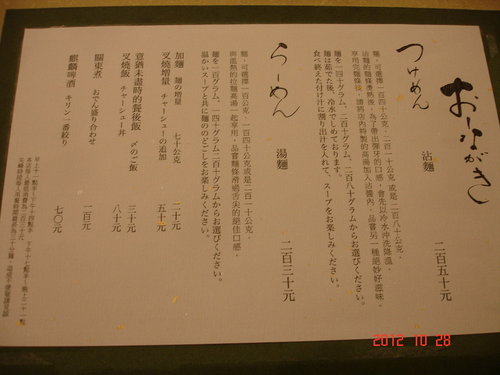 おしながき
つけめん 沾麵 二百五十元
麵，可選擇一百四十公克，二百一十公克或是二百八十公克。
沾麵的麵條燙熟後，為了帶出彈牙的口感，會先以冷水沖洗降溫，
享用完麵條後，請將店內特製的高湯加入沾醬內，品嘗另一種絕妙好滋味。
麵を一百四十グラム、二百一十グラム、二百八十グラムからお選びください。
麵は茹でた後、冷水でしめております。
食べ終えた付け汁に割り出汁を入れて、スープをお楽しみください。
らーめん 湯麵 二百三十元
麵，可選擇一百公克，一百四十公克或是二百一十公克。
與溫熱的拉麵高湯一起享用，品嘗麵條滑過舌尖的絕佳口感，
麵を一百グラム、一百四十グラム、二百一十グラムからお選びください。
温かいスープと共に麵ののどごしをお楽しみください。
加麵 麺の増量 七十公克 二十元
叉燒增量 チャーシューの追加 五十元
意猶未盡時的餐後飯 〆のご飯 三十元
叉燒飯 チャーシュー丼 八十元
關東煮 おでん盛り合わせ 一百元
麒麟啤酒 キリン一番絞り 七〇元
2012 10 28